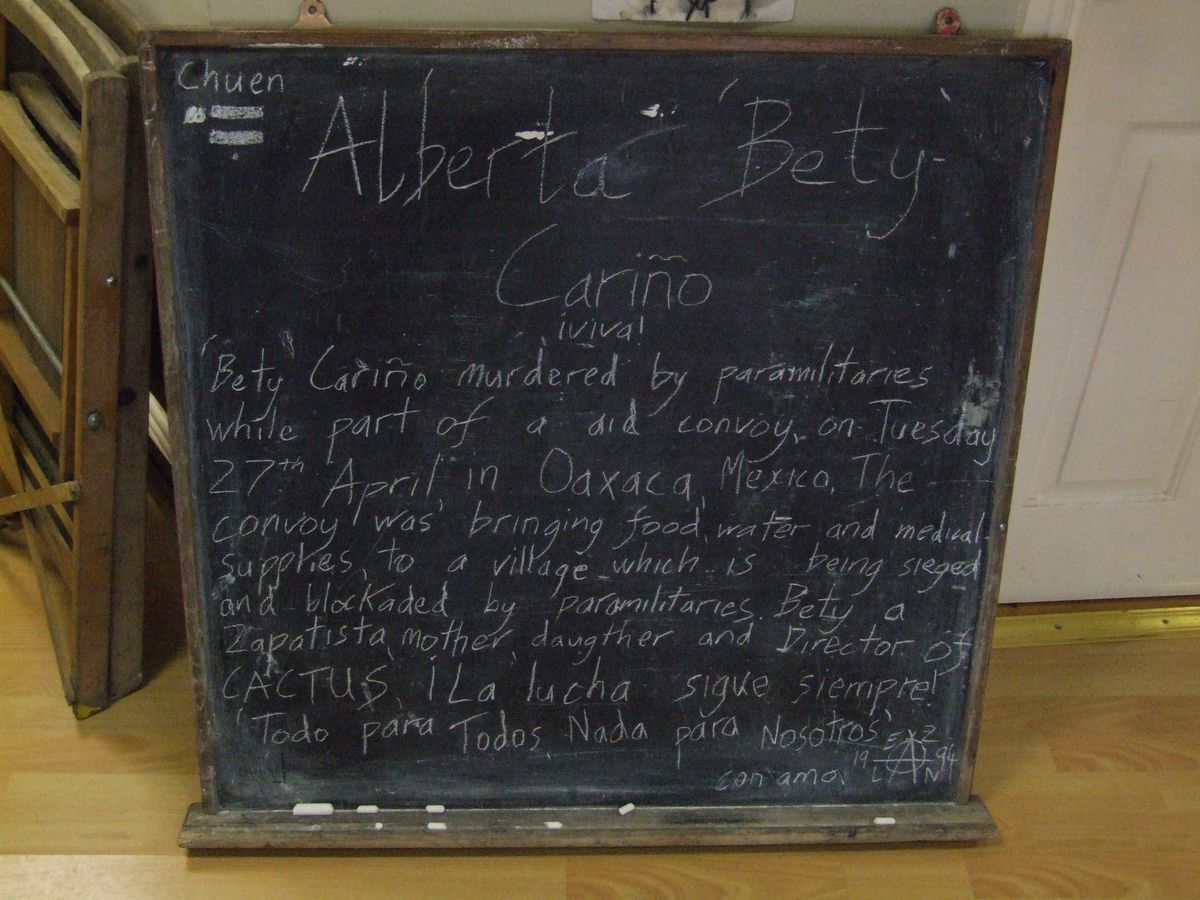 Chuen
Alberta 'Bety'
Cariño
¡viva!
'Bety' Cariño murdered by paramilitaries
while part of a aid convoy, on Tuesday
27th April in Oaxaca, Mexico. The
convoy was bringing food, water and medical
supplies, to a village which is being sieged
and blockaded by paramilitaries. Bety a
Zapatista, mother, daugther and Director of
CACTUS. ¡La lucha sigue siempre!
'Todo para Todos, Nada para Nosotros'
con amo.
EZ
19 94
LN